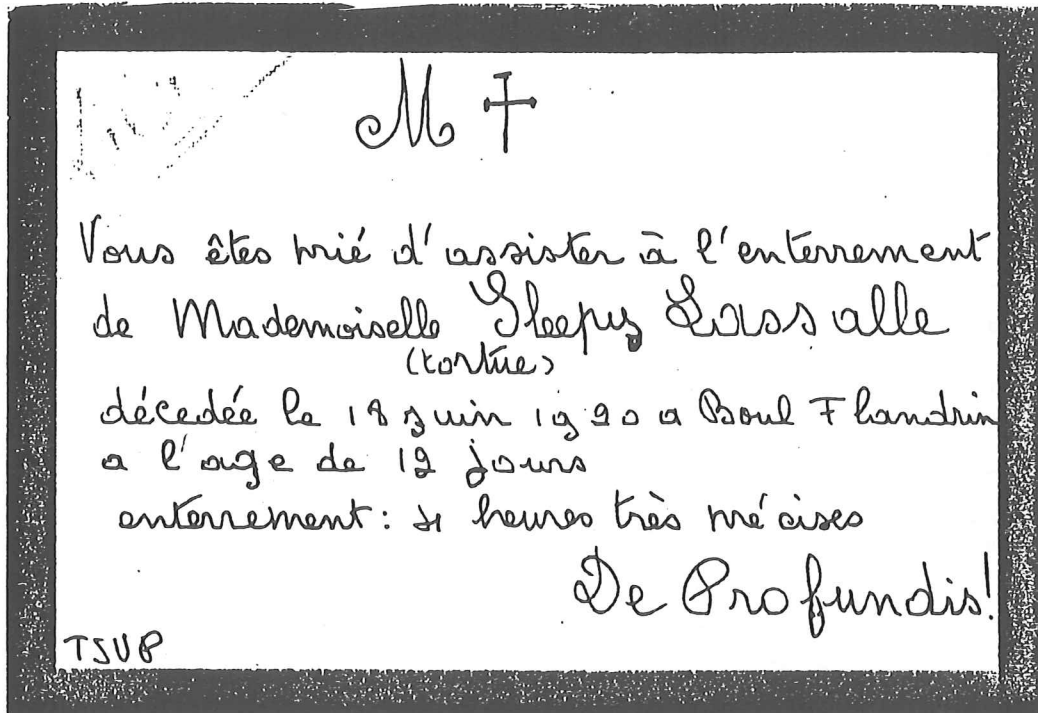 M †
Vous êtes prié d'assister à l'enterrement
de Mademoiselle Sleepy Lassalle
(tortue)
décedée le 18 juin 1920 a Boul Flandrin
a l'age de 12 jours
enterrement: heures très précises
De Profundis!
TSVP